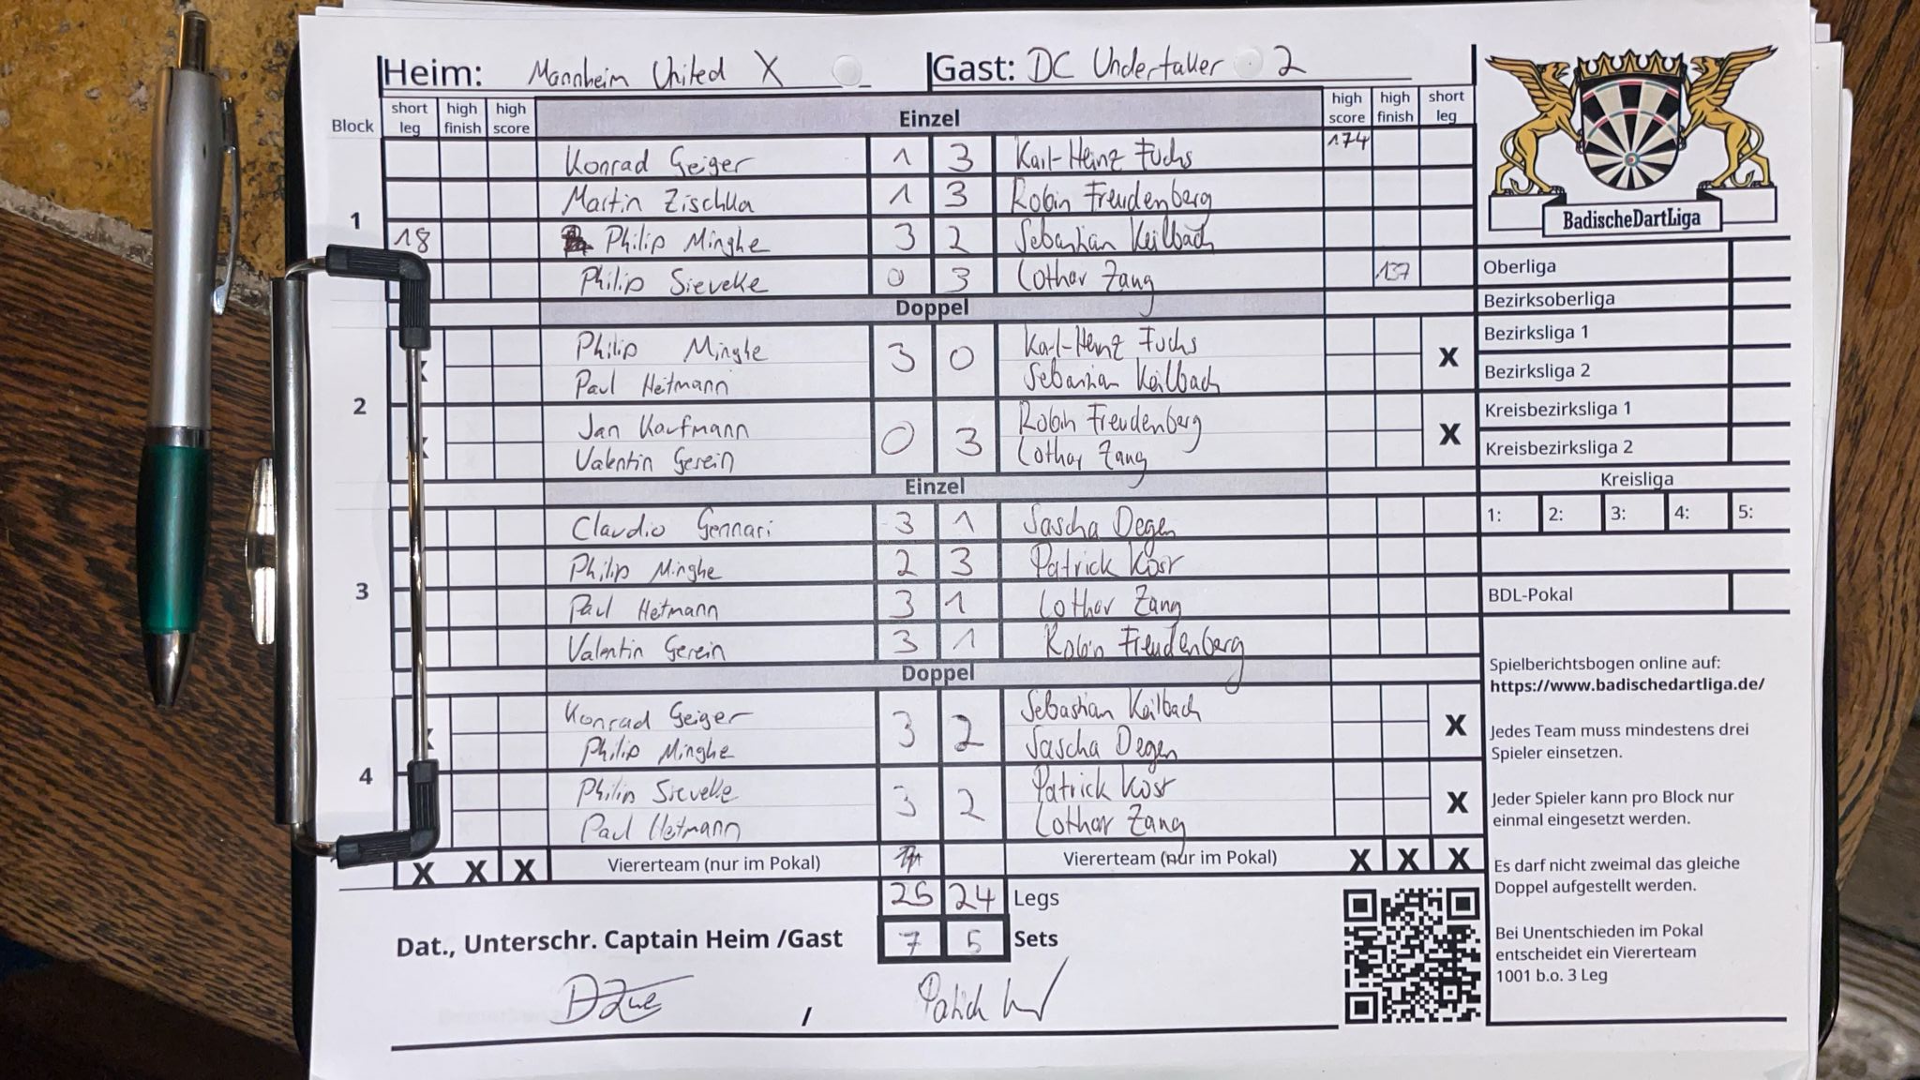 Heim: Mannheim United X Gast: DC Undertaker 2
Block short leg high finish high score Einzel high score high finish short leg
Konrad Geiger 1 3 Karl-Heinz Fuchs 174
Martin Zischka 1 3 Robin Freudenberg
1
18 Philip Minghe 3 2 Sebastian Keilbach
Philip Sieveke 0 3 Lothar Zang 137
Doppel
Philip Minghe 3 0 Karl-Heinz Fuchs X
Paul Heitmann Sebastian Keilbach
2
Jan Kaufmann 0 3 Robin Freudenberg X
Valentin Gerein Lothar Zang
Einzel
Claudio Gennari 3 1 Sascha Degen
Philip Minghe 2 3 Patrick Kost
3
Paul Heitmann 3 1 Lothar Zang
Valentin Gerein 3 1 Robin Freudenberg
Doppel
Konrad Geiger 3 2 Sebastian Keilbach X
Philip Minghe Sascha Degen
4
Philip Sieveke 3 2 Patrick Kost X
Paul Heitmann Lothar Zang
X X X Viererteam (nur im Pokal) Viererteam (nur im Pokal) X X X
25 24 Legs
Dat., Unterschr. Captain Heim /Gast 7 5 Sets
/
BadischeDartLiga
Oberliga
Bezirksoberliga
Bezirksliga 1
Bezirksliga 2
Kreisbezirksliga 1
Kreisbezirksliga 2
Kreisliga
1: 2: 3: 4: 5:
BDL-Pokal
Spielberichtsbogen online auf:
https://www.badischedartliga.de/
Jedes Team muss mindestens drei
Spieler einsetzen.
Jeder Spieler kann pro Block nur
einmal eingesetzt werden.
Es darf nicht zweimal das gleiche
Doppel aufgestellt werden.
Bei Unentschieden im Pokal
entscheidet ein Viererteam
1001 b.o. 3 Leg